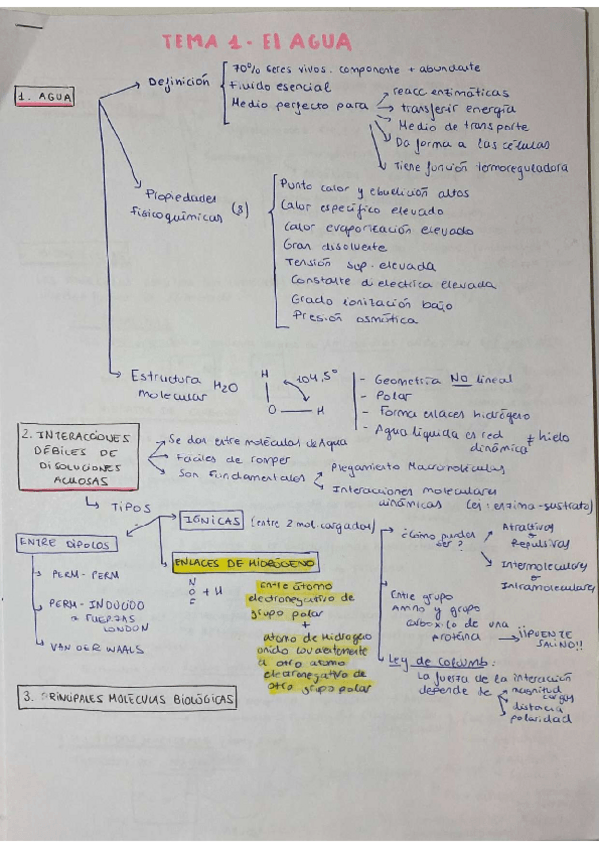 TEMA 1 - El AGUA
1. AGUA
Definición
70% seres vivos. componente + abundante
Fluido esencial
Medio perfecto para
reacc enzimáticas
transferir energía
Medio de transporte
Da forma a las células
Tiene función termoreguladora
Propiedades
fisicoquímicas (8)
Punto calor y ebullición altos
Calor específico elevado
Calor evaporización elevado
Gran disolvente
Tensión sup. elevada
Constante dielectrica elevada
Grado ionización bajo
Presión osmótica
Estructura
molecular
H2O
H
104,5°
O — H
- Geometria NO lineal
- Polar
- Forma enlaces hidrógeno
- Agua líquida es red
dinámica
≠ hielo
2. INTERACCIONES
DÉBILES DE
DISOLUCIONES
ACUOSAS
Se dan entre moléculas de Agua
Fáciles de romper
Son Fundamentales
Plegamiento Macromoléculas
Interaciones moleculares
dinámicas (ej: enzima-sustrato)
TIPOS
ENTRE DIPOLOS
PERM - PERM
PERM - INDUCIDO
FUERZAS
LONDON
VAN DER WAALS
IÓNICAS (entre 2 mol. cargadas)
ENLACES DE HIDRÓGENO
N
O + H
F
Entre átomo
electronegativo de
grupo polar
+
átomo de Hidrógeno
unido covalentemente
a otro átomo
electronegativo de
otro grupo polar
¿Cómo pueden
ser?
Atractivas
o
Repulsivas
Intermoleculares
o
Intramoleculares
Entre grupo
Amino y grupo
carboxilo de una
proteína
¡¡PUENTE
SALINO!!
Ley de Columb:
La fuerza de la interacción
depende de
magnitud
cargas
distacia
polaridad
3. PRINCIPALES MOLÉCULAS BIOLÓGICAS